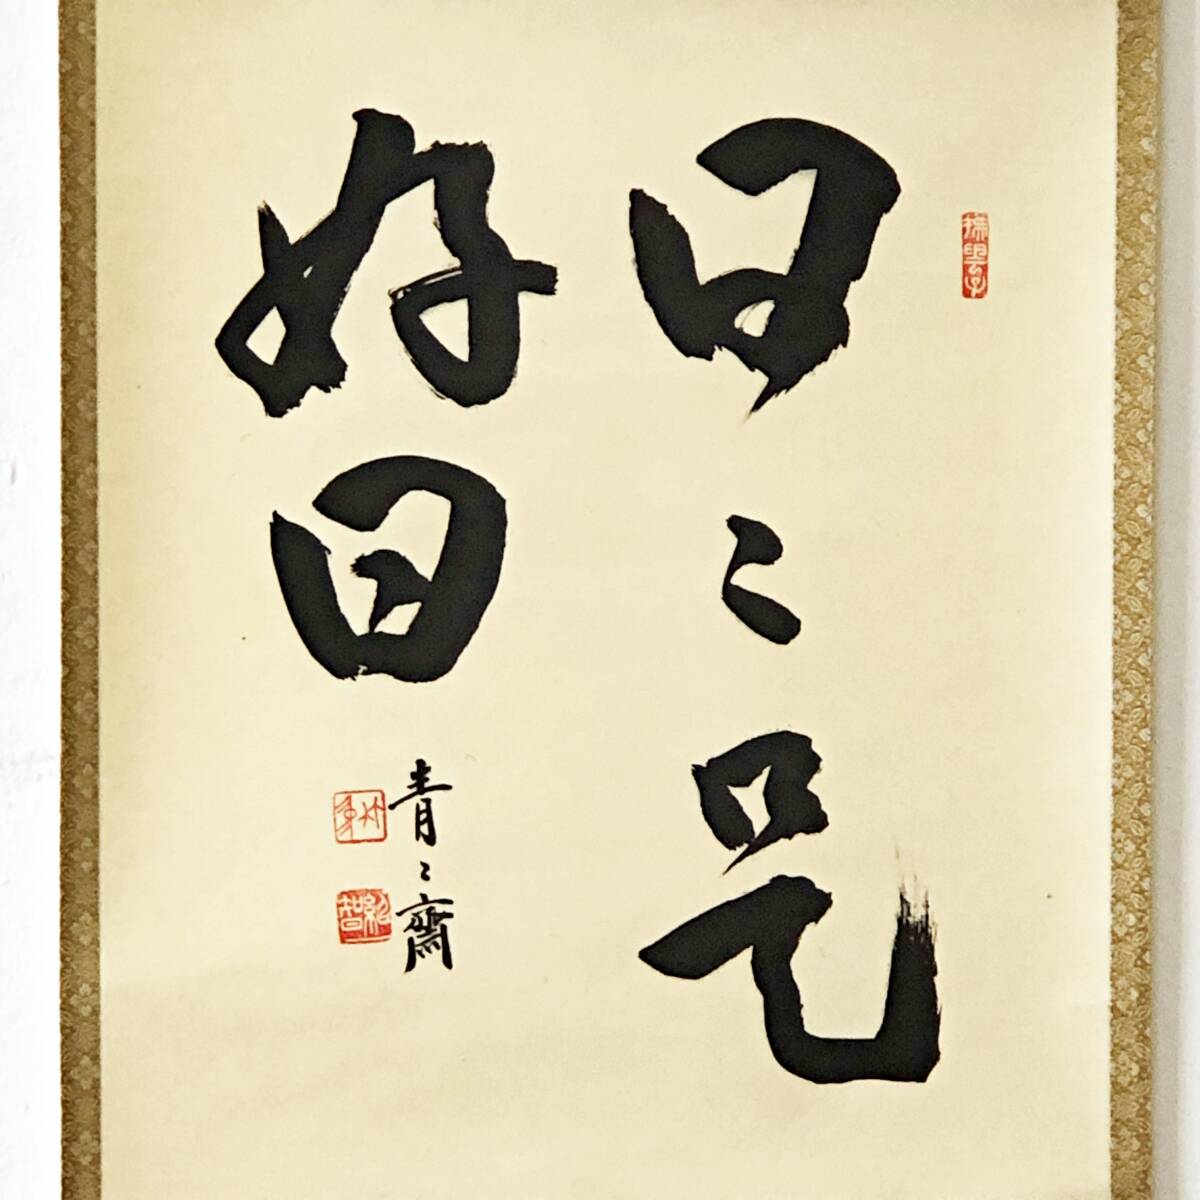 日々是
好日
青々齋
紹智